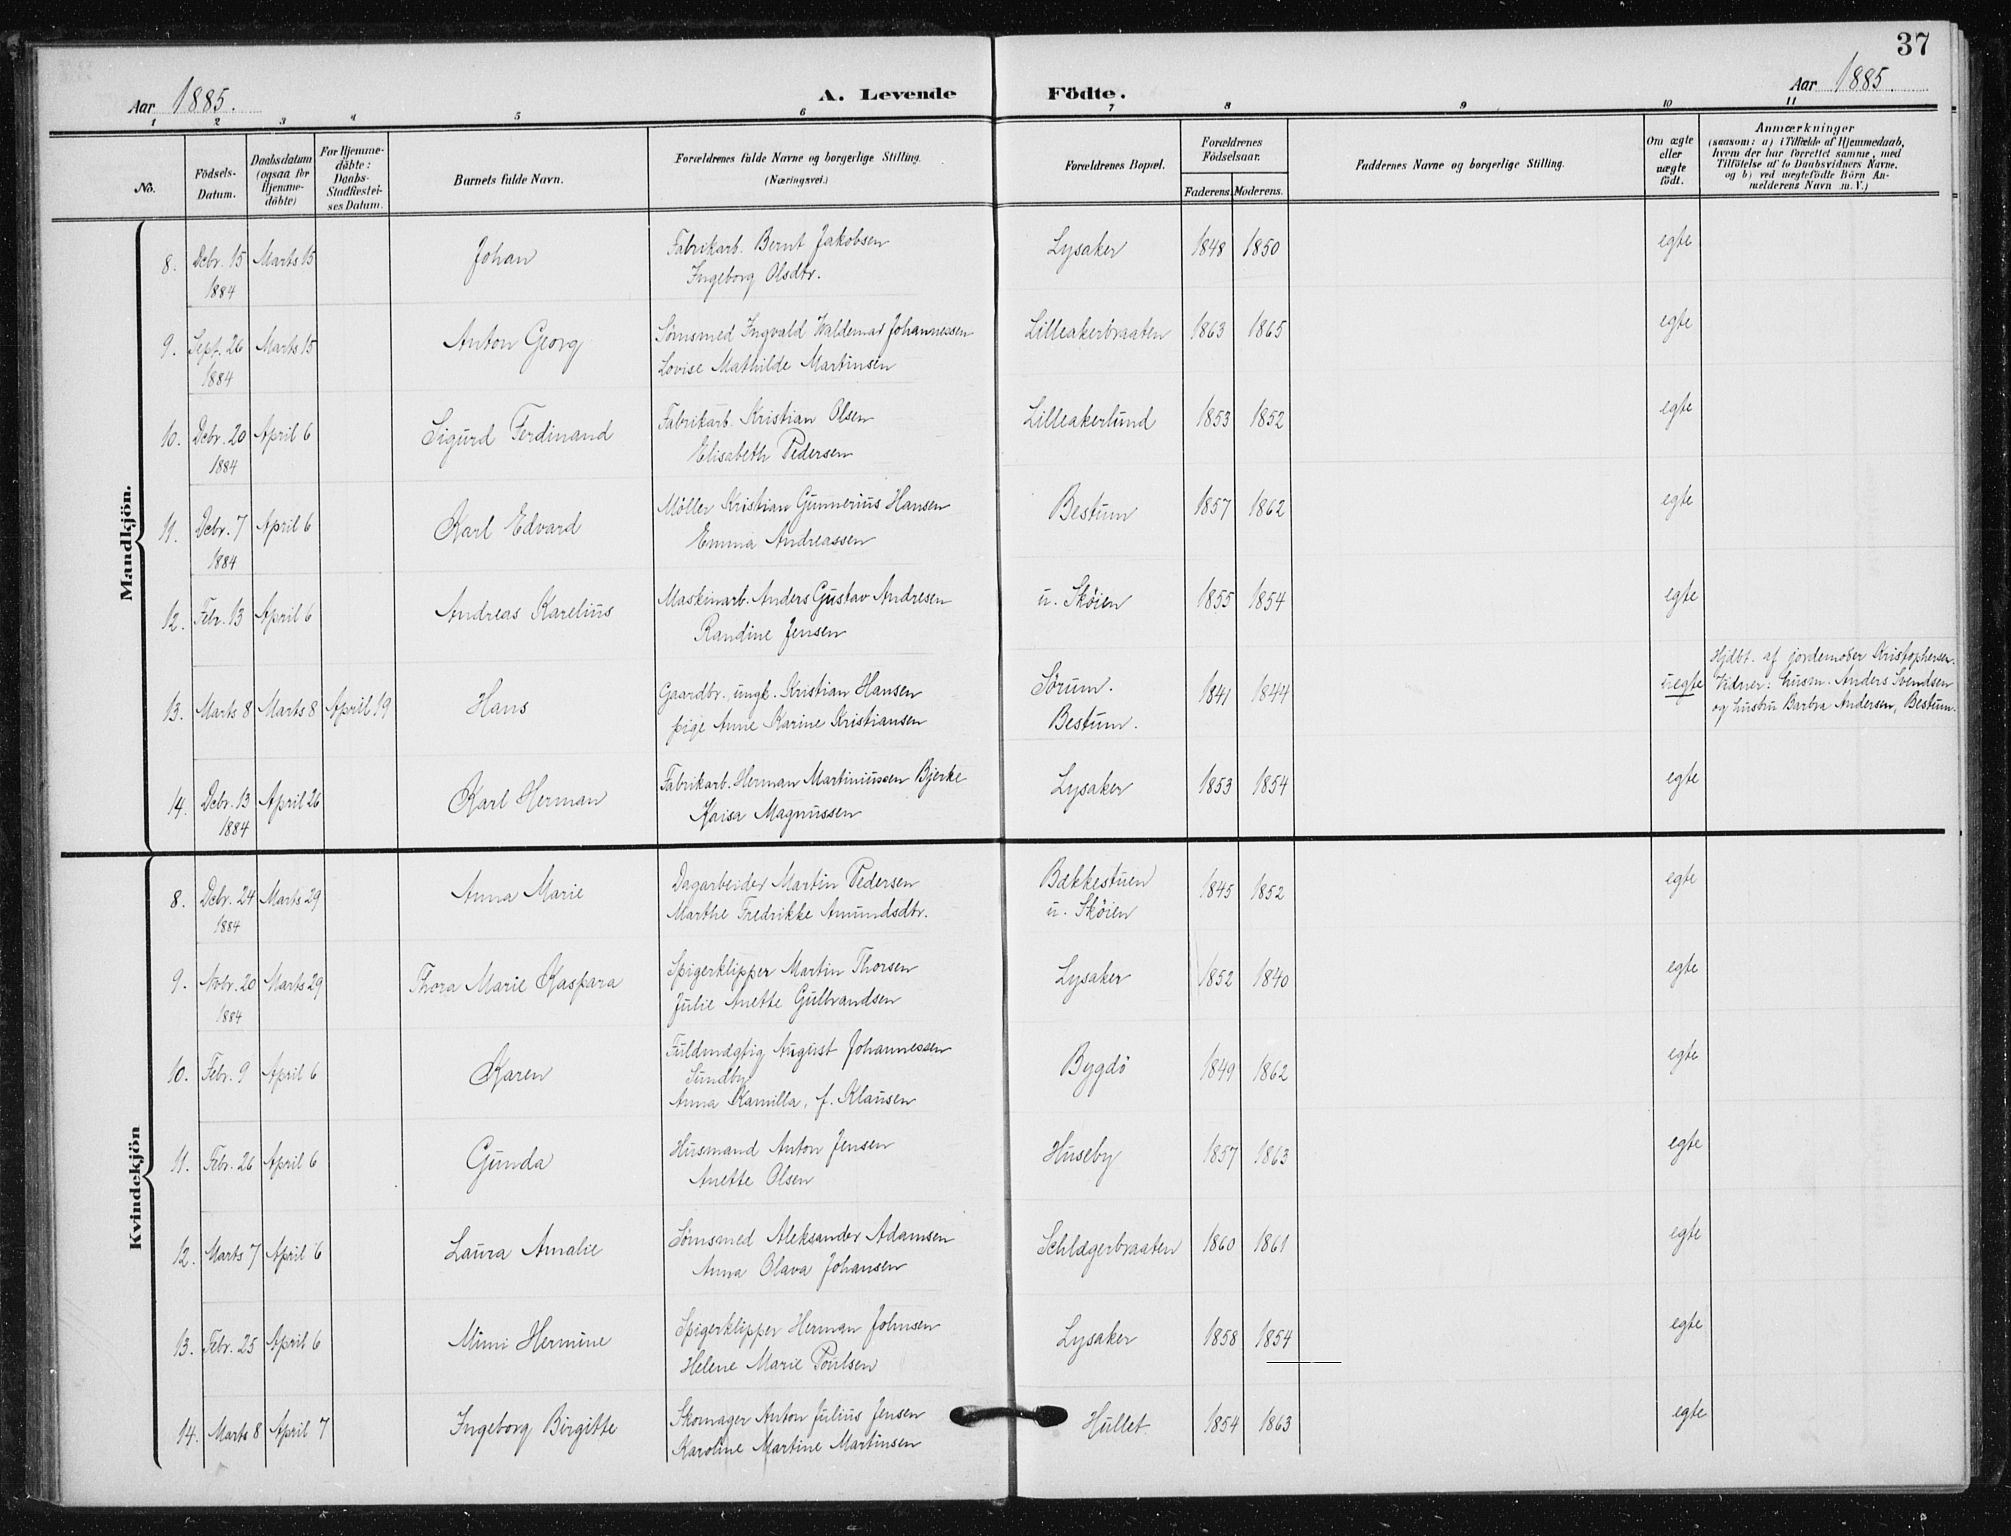 37
Aar 1885. A. Levende Födte. Aar 1885.
1 2 3 4 5 6 7 8 9 10 11
No. Födsels-Datum. Daabsdatum (ogsaa for Hjemmedöbte) For Hjemmedöbte: Daabs-Stadfæstelses Datum. Barnets fulde Navn. Forældrenes fulde Navne og borgerlige Stilling. (Næringsvei.) Forældrenes Bopæl. Forældrenes Födselsaar. Faderens. Moderens. Faddernes Navne og borgerlige Stilling. Om ægte eller uægte födt. Anmærkninger (saasom: a) i Tilfælde af Hjemmedaab, hvem der har forrettet samme, med Tilföielse af to Daabsvidners Navne, og b) ved uægtefödte Börn Anmelderens Navn m. V.)
Mandkjön.
8. Dcbr. 15 Marts 15 Johan Fabrikarb. Bernt Jakobsen Lysaker 1848 1850 egte
1884 Ingeborg Olsdtr.
9. Sept. 26 Marts 15 Anton Georg Sømsmed Ingvald Waldemar Johannessen Lilleakerbraaten 1863 1865 egte
1884 Lovise Mathilde Martinsen
10. Dcbr. 20 April 6 Sigurd Ferdinand Fabrikarb. Kristian Olsen Lilleakerlund 1853 1852 egte
1884 Elisabeth Pedersen
11. Dcbr. 7 April 6 Karl Edvard Møller Kristian Gunnerius Hansen Bestum 1857 1862 egte
1884 Emma Andreassen
12. Febr. 13 April 6 Andreas Karelius Maskinarb. Anders Gustav Andresen u. Skøien 1855 1854 egte
Randine Jensen
13. Marts 8 Marts 8 April 19 Hans Gaardbr. ungk. Kristian Hansen Sørum. 1841 1844 uegte Hjdbt. af jordemoder Kristophersen.
pige Anne Karine Kristiansen Bestum. Vidner: husm. Anders Svendsen
og hustru Barbra Andersen, Bestum.
14. Dcbr. 13 April 26 Karl Herman Fabrikarb. Herman Martiniussen Bjerke Lysaker 1853 1854 egte
1884 Kaisa Magnussen
Kvindekjön
8. Dcbr. 24 Marts 29 Anna Marie Dagarbeider Martin Pedersen Bækkestuen 1845 1852 egte
1884 Marthe Fredrikke Amundsdtr. u. Skøien
9. Novbr. 20 Marts 29 Thora Marie Kaspara Spigerklipper Martin Thorsen Lysaker 1852 1840 egte
1884 Julie Anette Gulbrandsen
10. Febr. 9 April 6 Karen Fuldmægtig August Johannessen Bygdø 1849 1862 egte
Sundby
Anna Kamilla, f. Klausen
11. Febr. 26 April 6 Gunda Husmand Anton Jensen Huseby 1857 1863 egte
Anette Olsen
12. Marts 7 April 6 Laura Amalie Sømsmed Aleksander Adamsen Schlægerbraaten 1860 1861 egte
Anna Olava Johansen
13. Febr. 25 April 6 Mimi Hermine Spigerklipper Herman Johnsen Lysaker 1858 1854 egte
Helene Marie Poulsen
14. Marts 8 April 7 Ingeborg Birgitte Skomager Anton Julius Jensen Hullet 1854 1863 egte
Karoline Martine Martinsen